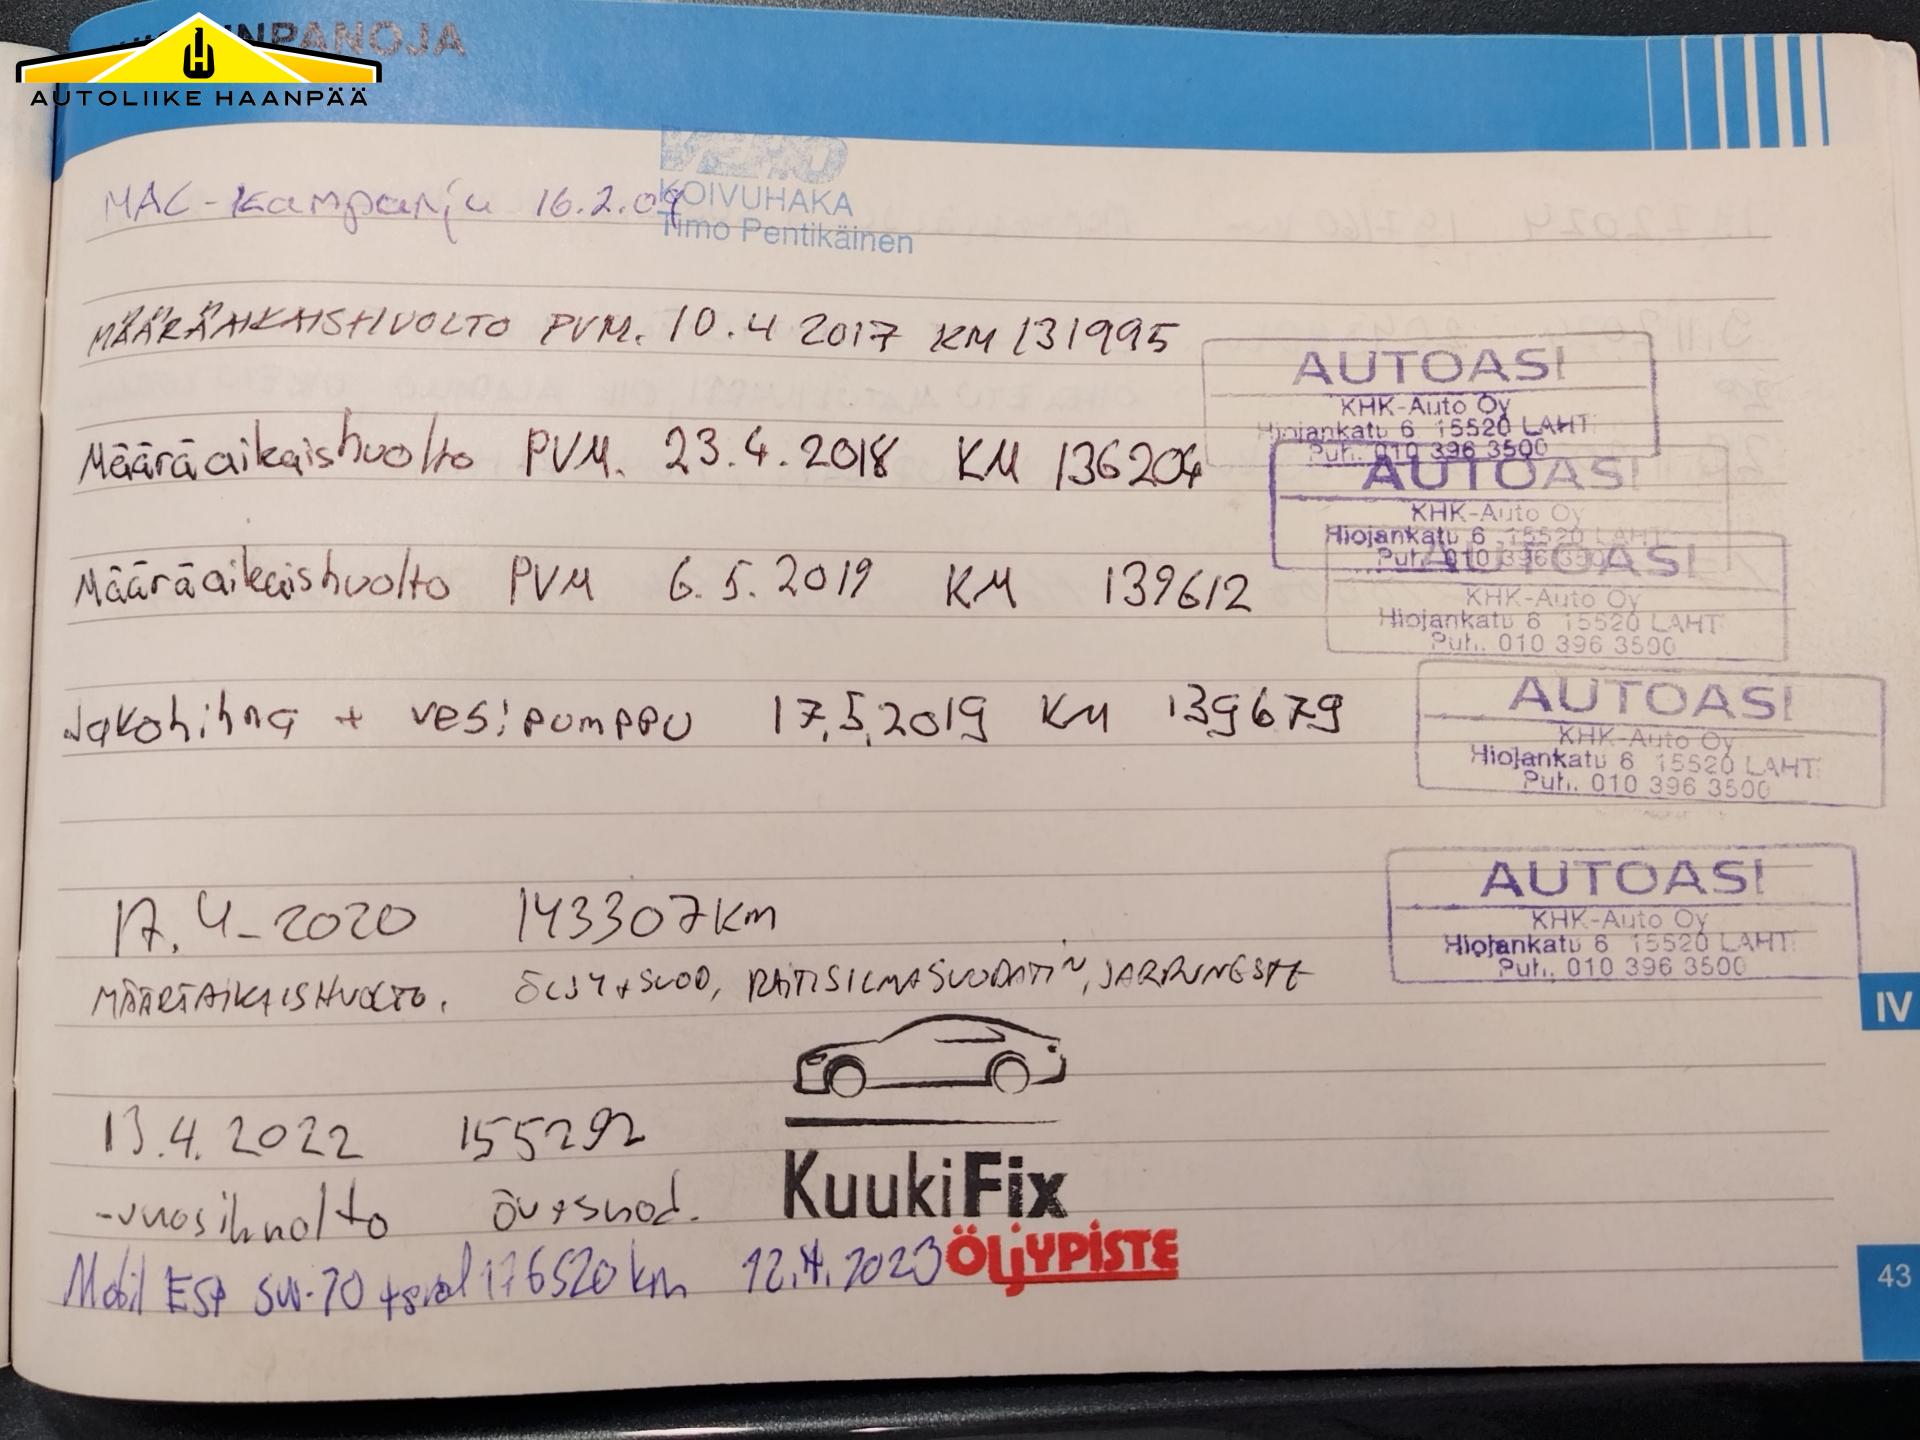 INPANOJA
AUTOLIIKE HAANPÄÄ
MAC-kampanja 16.2.09
VEHO
KOIVUHAKA
Timo Pentikäinen
MÄÄRÄAIKAISHUOLTO PVM. 10.4 2017 KM 131995
AUTOASI
KHK-Auto Oy
Hiojankatu 6 15520 LAHTI
Puh. 010 396 3500
Määräaikaishuolto PVM. 23.4.2018 KM 136204
AUTOASI
KHK-Auto Oy
Hiojankatu 6 15520 LAHTI
Puh. 010 396 3500
Määräaikaishuolto PVM 6.5.2019 KM 139612
AUTOASI
KHK-Auto Oy
Hiojankatu 6 15520 LAHTI
Puh. 010 396 3500
Jakohihna + vesipumppu 17.5.2019 KM 139679
AUTOASI
KHK-Auto Oy
Hiojankatu 6 15520 LAHTI
Puh. 010 396 3500
17.4-2020 143307km
AUTOASI
KHK-Auto Oy
Hiojankatu 6 15520 LAHTI
Puh. 010 396 3500
MÄÄRÄAIKAISHUOLTO. ÖLJY+SUOD, RAITISILMASUODATIN, JARRUNESTE
IV
13.4.2022 155292
-vuosihuolto öv+suod.
KuukiFix
Mobil ESP 5W-30 +suod 176520 km 12.4.2023
ÖLJYPISTE
43